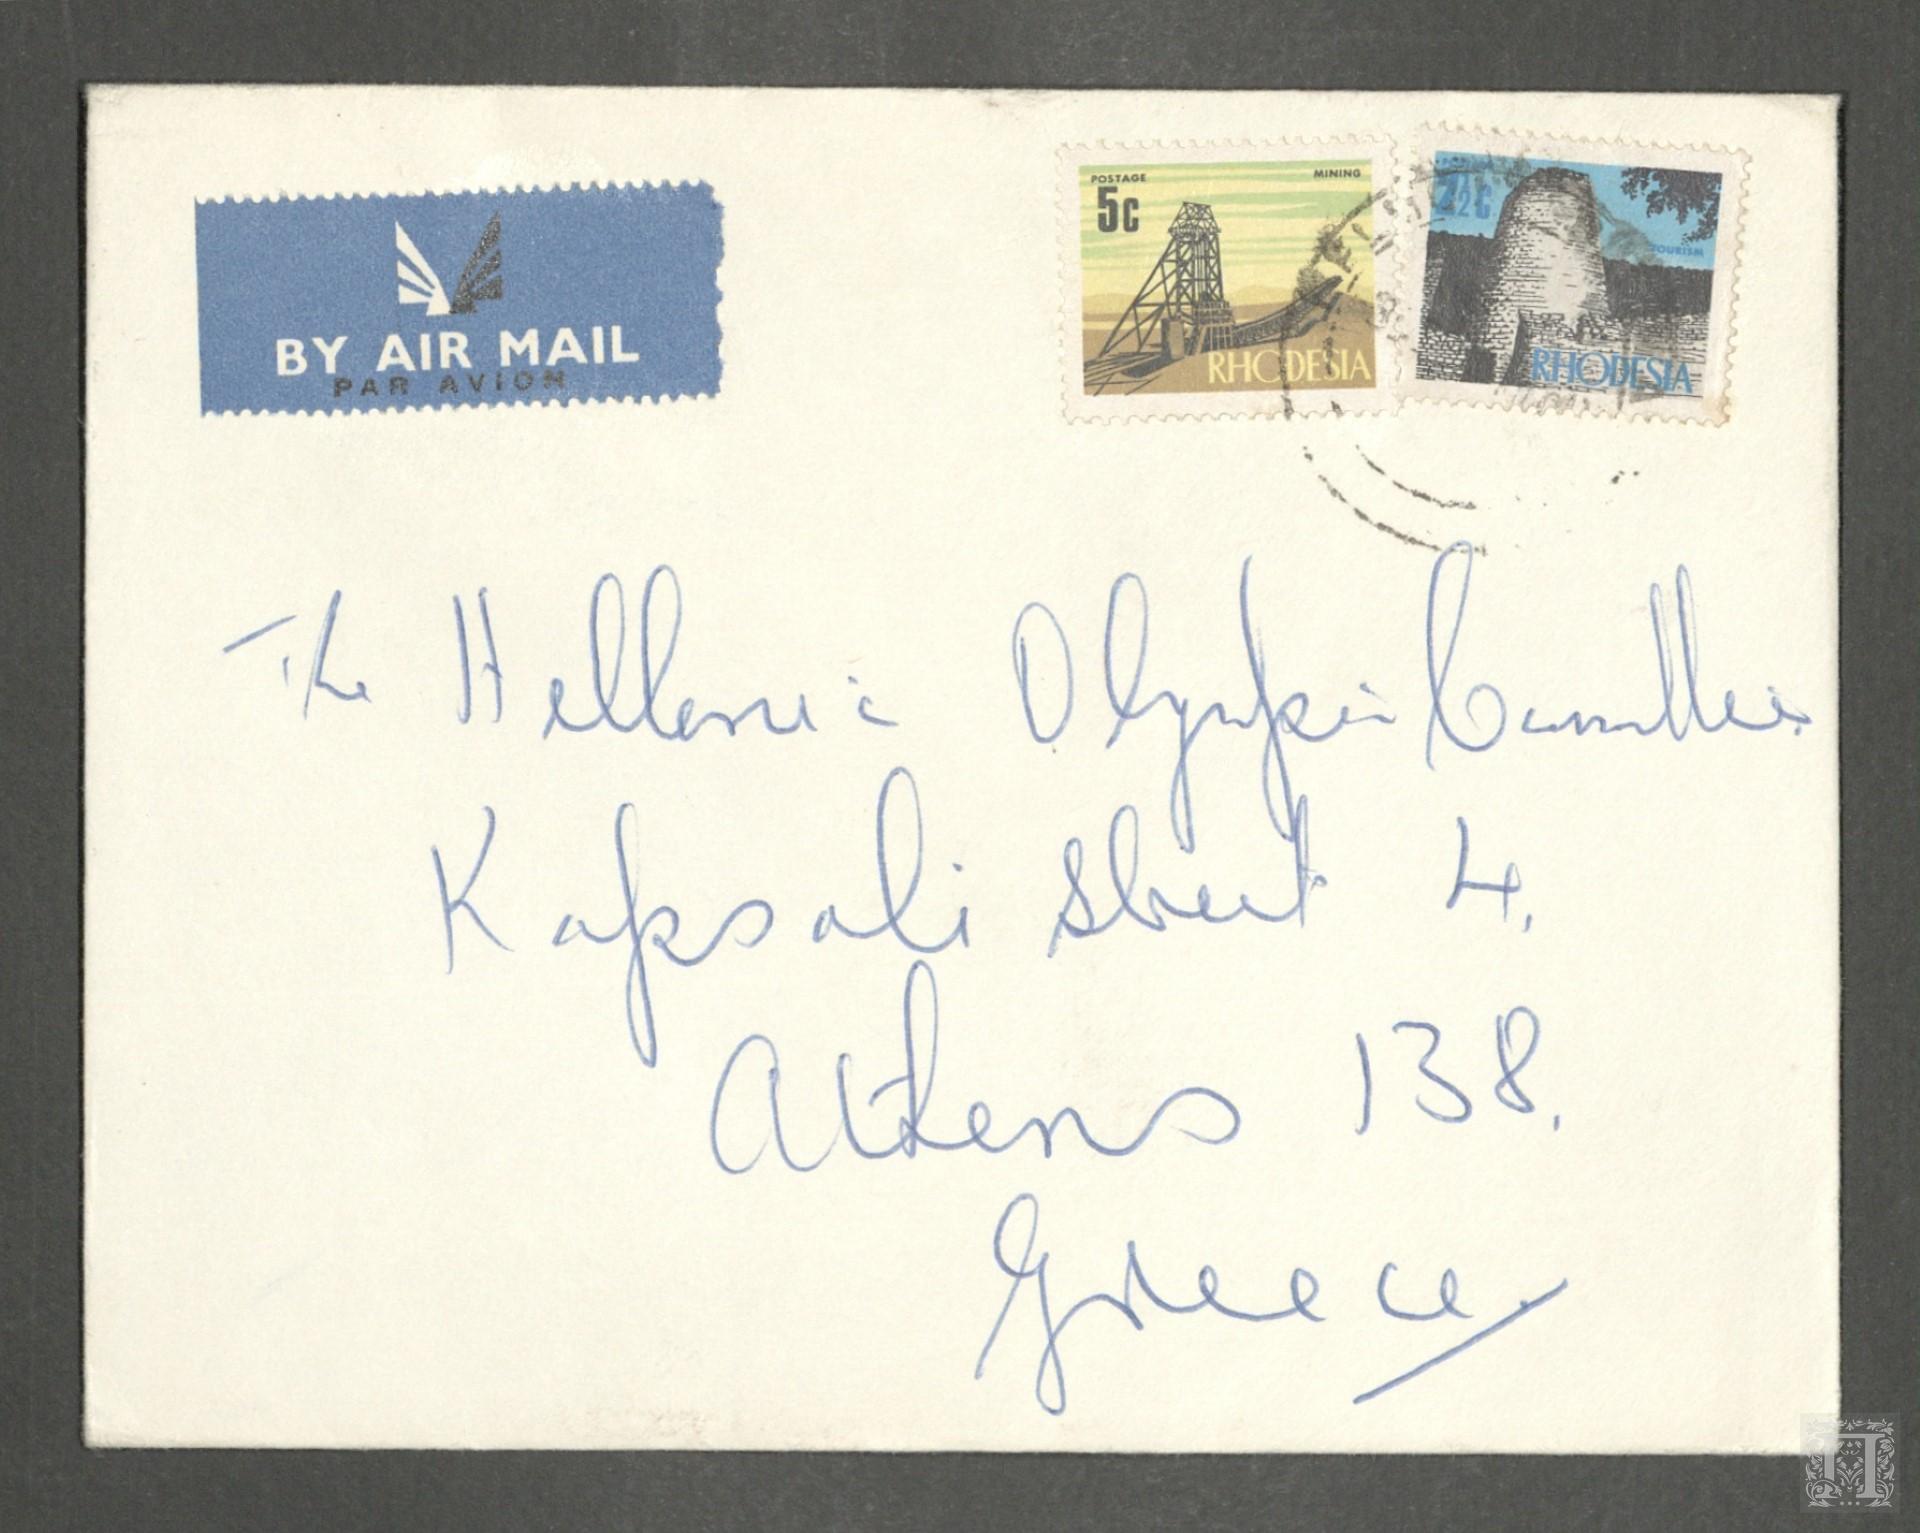 BY AIR MAIL
PAR AVION
POSTAGE
5c
MINING
RHODESIA
½c
TOURISM
RHODESIA
The Hellenic Olympic Committee
Kapsali Street 4.
Athens 138.
Greece.